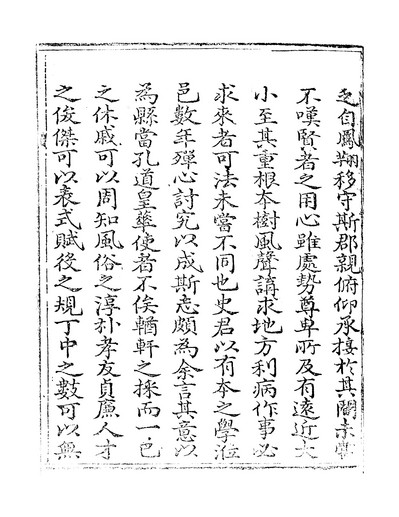 乏自鳳翔移守斯郡親俯仰承接於其間未嘗
不嘆賢者之用心雖處勢尊卑所及有遠近大
小至其重根夲樹風聲講求地方利病作事必
求來者可法未嘗不同也史君以有夲之學涖
邑數年殫心討究以成斯志頗為余言其意以
為縣當孔道皇華使者不俟輶軒之採而一邑
之休戚可以周知風俗之淳朴孝友貞廉人才
之俊傑可以表式賦役之規丁中之數可以無